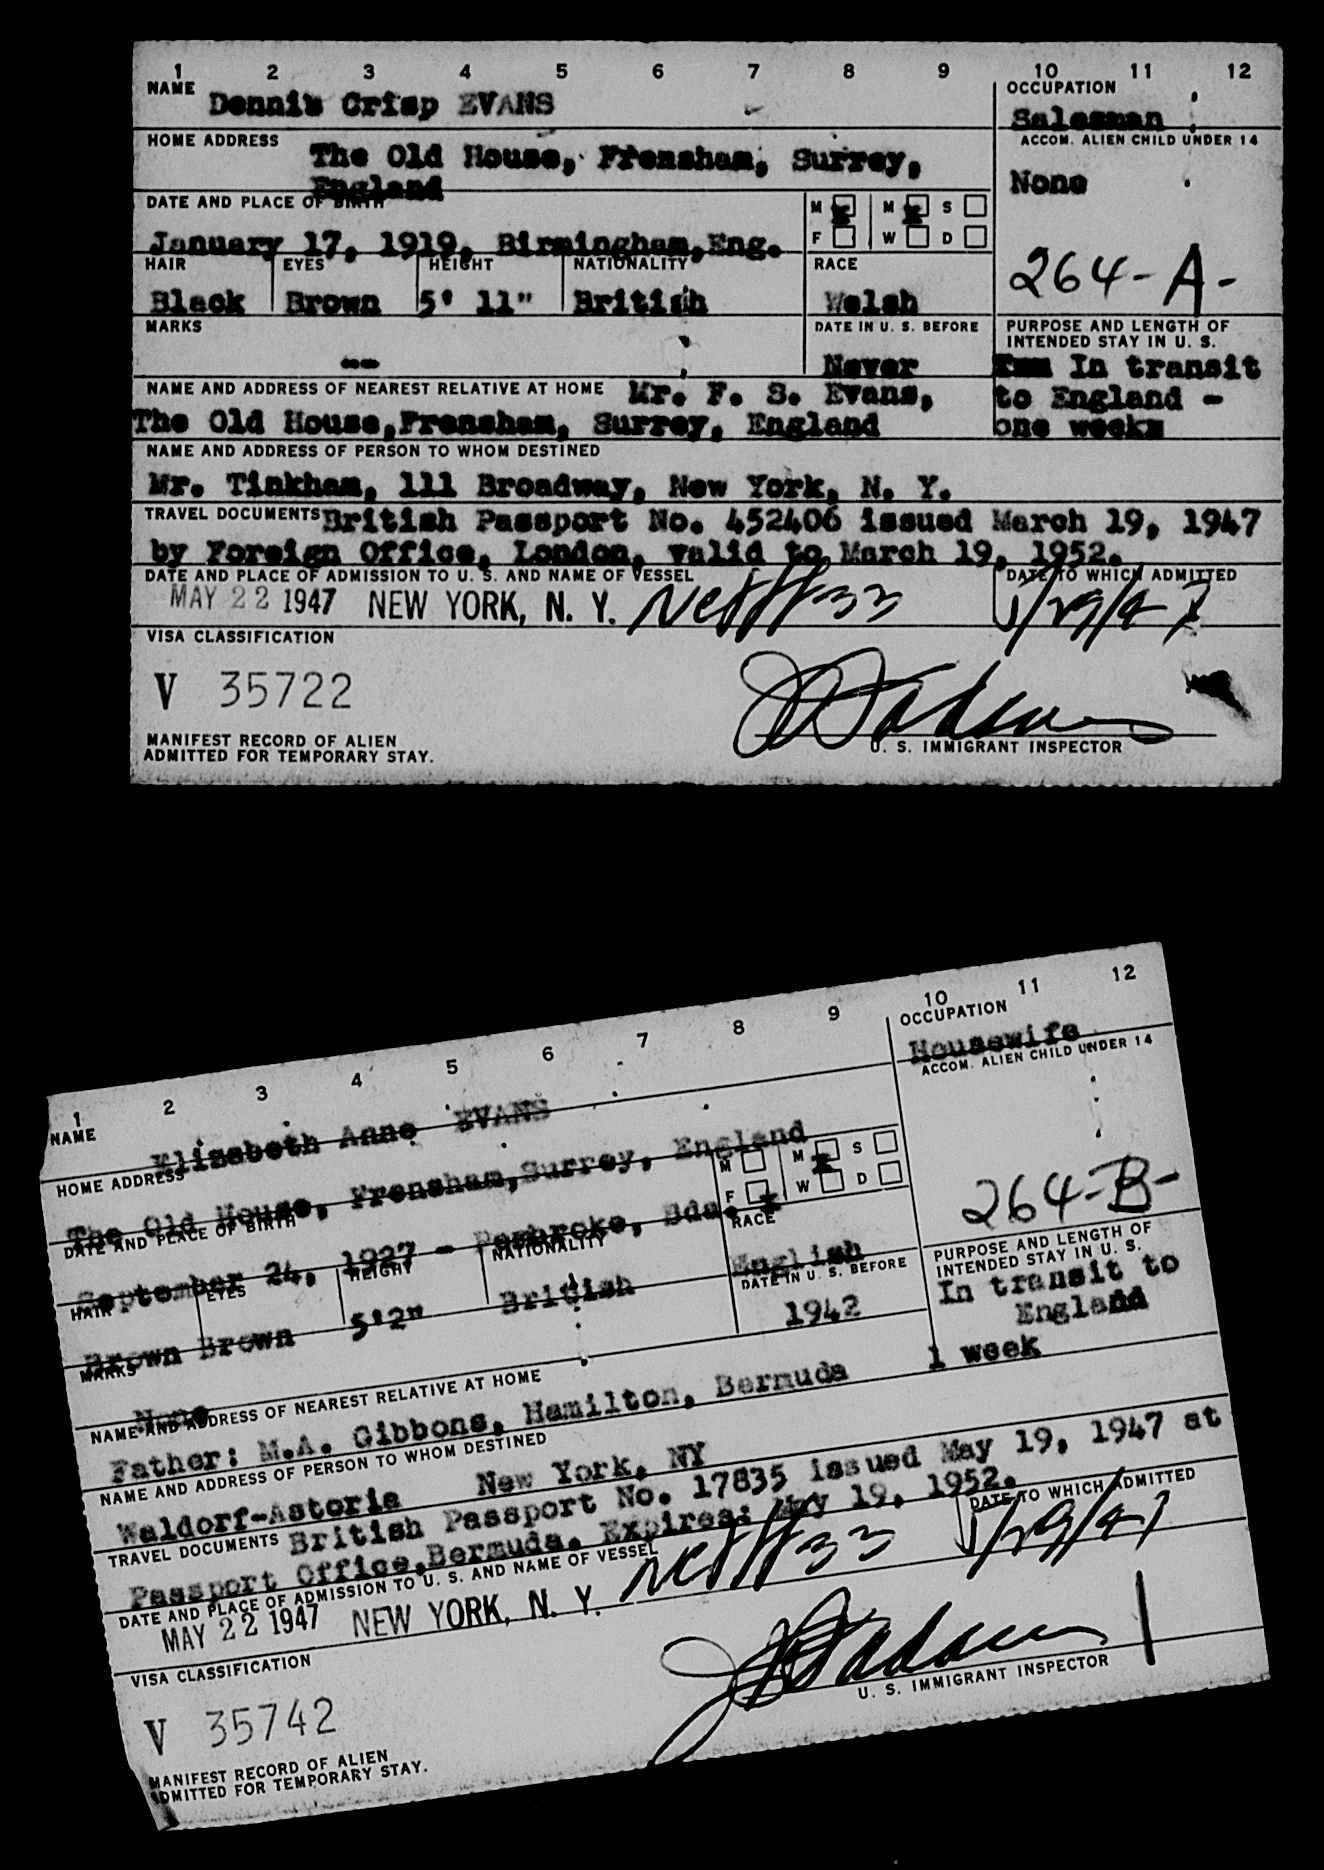 1 2 3 4 5 6 7 8 9 10 11 12
NAME Dennis Crisp EVANS
OCCUPATION
Salesman
HOME ADDRESS The Old House, Frensham, Surrey,
England
ACCOM. ALIEN CHILD UNDER 14
None
DATE AND PLACE OF BIRTH
January 17, 1919, Birmingham,Eng.
M x M x S
F W D
264-A-
HAIR EYES HEIGHT NATIONALITY RACE
Black Brown 5' 11" British Welsh
MARKS
--
DATE IN U. S. BEFORE
Never
PURPOSE AND LENGTH OF
INTENDED STAY IN U. S.
In transit
to England -
one week
NAME AND ADDRESS OF NEAREST RELATIVE AT HOME Mr. F. S. Evans,
The Old House,Frensham, Surrey, England
NAME AND ADDRESS OF PERSON TO WHOM DESTINED
Mr. Tinkham, 111 Broadway, New York, N. Y.
TRAVEL DOCUMENTS British Passport No. 452406 issued March 19, 1947
by Foreign Office, London, valid to March 19, 1952.
DATE AND PLACE OF ADMISSION TO U. S. AND NAME OF VESSEL
MAY 22 1947 NEW YORK, N. Y.
DATE TO WHICH ADMITTED
5/29/47
VISA CLASSIFICATION
V 35722
U. S. IMMIGRANT INSPECTOR
MANIFEST RECORD OF ALIEN
ADMITTED FOR TEMPORARY STAY.
1 2 3 4 5 6 7 8 9 10 11 12
NAME Elizabeth Anne EVANS
OCCUPATION
Housewife
HOME ADDRESS
The Old House, Frensham,Surrey, England
ACCOM. ALIEN CHILD UNDER 14
DATE AND PLACE OF BIRTH
September 24, 1927 - Pembroke, Bda.
M M x S
F x W D
264-B-
HAIR EYES HEIGHT NATIONALITY RACE
Brown Brown 5'2" British English
MARKS
None
DATE IN U. S. BEFORE
1942
PURPOSE AND LENGTH OF
INTENDED STAY IN U. S.
In transit to
England
1 week
NAME AND ADDRESS OF NEAREST RELATIVE AT HOME
Father: M.A. Gibbons, Hamilton, Bermuda
NAME AND ADDRESS OF PERSON TO WHOM DESTINED
Waldorf-Astoria New York, NY
TRAVEL DOCUMENTS British Passport No. 17835 issued May 19, 1947 at
Passport Office,Bermuda. Expires: May 19, 1952.
DATE AND PLACE OF ADMISSION TO U. S. AND NAME OF VESSEL
MAY 22 1947 NEW YORK, N. Y.
DATE TO WHICH ADMITTED
5/29/47
VISA CLASSIFICATION
V 35742
U. S. IMMIGRANT INSPECTOR
MANIFEST RECORD OF ALIEN
ADMITTED FOR TEMPORARY STAY.